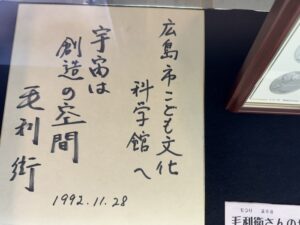 広島市こども文化
科学館へ
宇宙は
創造の空間
毛利衛
1992.11.28
毛利衛さんの